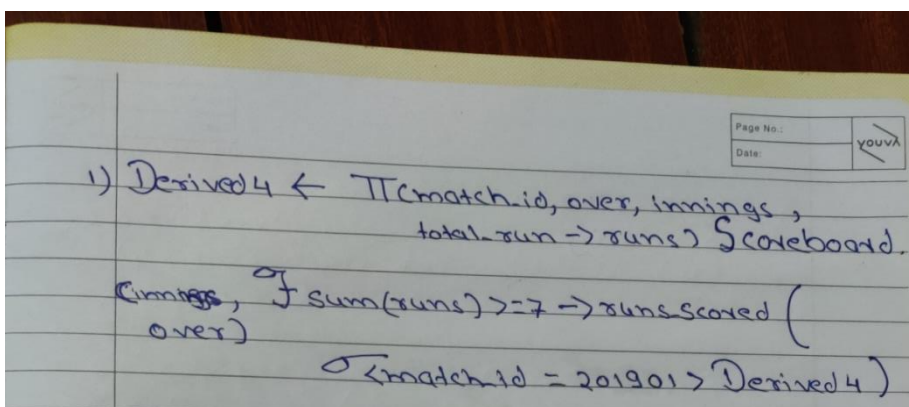 Page No.:
Date:
YOUVA
1) Derived4 ← π(match_id, over, innings,
total_run -> runs) Scoreboard.
(innings, ℱ sum(runs) >= 7 -> runs_scored (
over)
σ<match_id = 201901> Derived4)